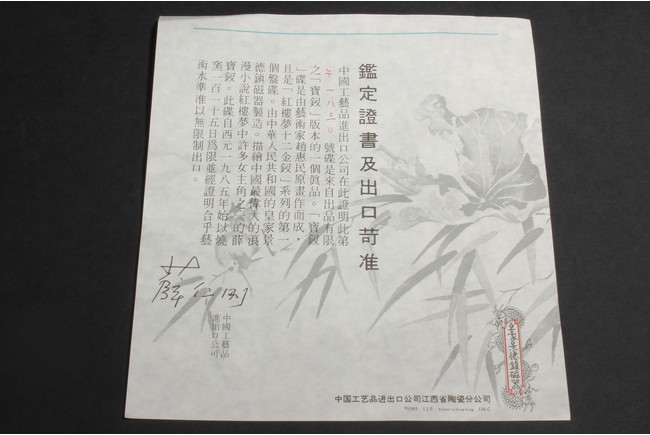 鑑定證書及出口苛准
中國工藝品進出口公司在此證明此第
一八三〇。號碟是來自出品有限
之「寶釵」版本的一個眞品。「寶釵
」碟是由藝術家趙惠民原畫作而成，
且是「紅樓夢十二金釵」系列的第一
個盤碟。由中華人民共和國的皇家景
德鎮磁器製造。描繪中國最偉大的浪
漫小說紅樓夢中許多女主角之一的薛
寶釵。此碟自西元一九八五年始以燒
窯一百一十五日爲限並經證明合乎藝
術水準准以無限制出口。
中國工藝品
進出口公司
皇家景德鎮磁器
中国工艺品进出口公司江西省陶瓷分公司